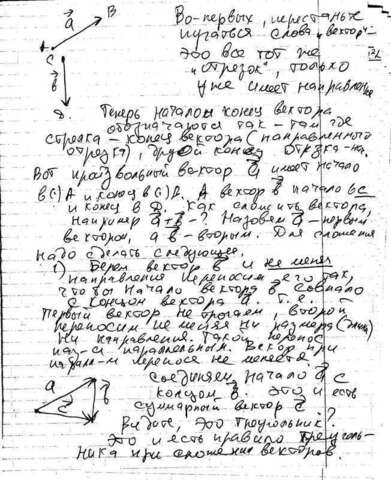 a⃗ B
Во-первых, перестаньте
A C
пугаться слова "вектор" -
это все тот же
b⃗
"отрезок", только
уже имеет направление
D.
Теперь начало и конец вектора
обозначаются так - там где
стрелка - конец вектора (направленного
отрезка), другой конец
Вот произвольный вектор a⃗ имеет начало
в (·) A и конец в (·) B. А вектор b начало в C
и конец в D. Как сложить вектора,
например a⃗ + b⃗ - ? Назовем a⃗ - первым
вектором, а b - вторым. Для сложения
надо сделать следующее.
1) Берем вектор b и не меняя
направления переносим его так,
чтобы начало вектора b совпало
с концом вектора a⃗. Т.е. -
первый вектор не трогаем, второй
переносим не меняя ни размера
ни направления. Такой перенос
наз-ся параллельным. Вектор при
паралл-м переносе не меняется.
a⃗ b⃗
c⃗
Соединяем начало a⃗ с
концом b⃗. Это и есть
суммарный вектор c⃗.
Видите, это треугольник?
Это и есть правило треуголь-
ника при сложении векторов.